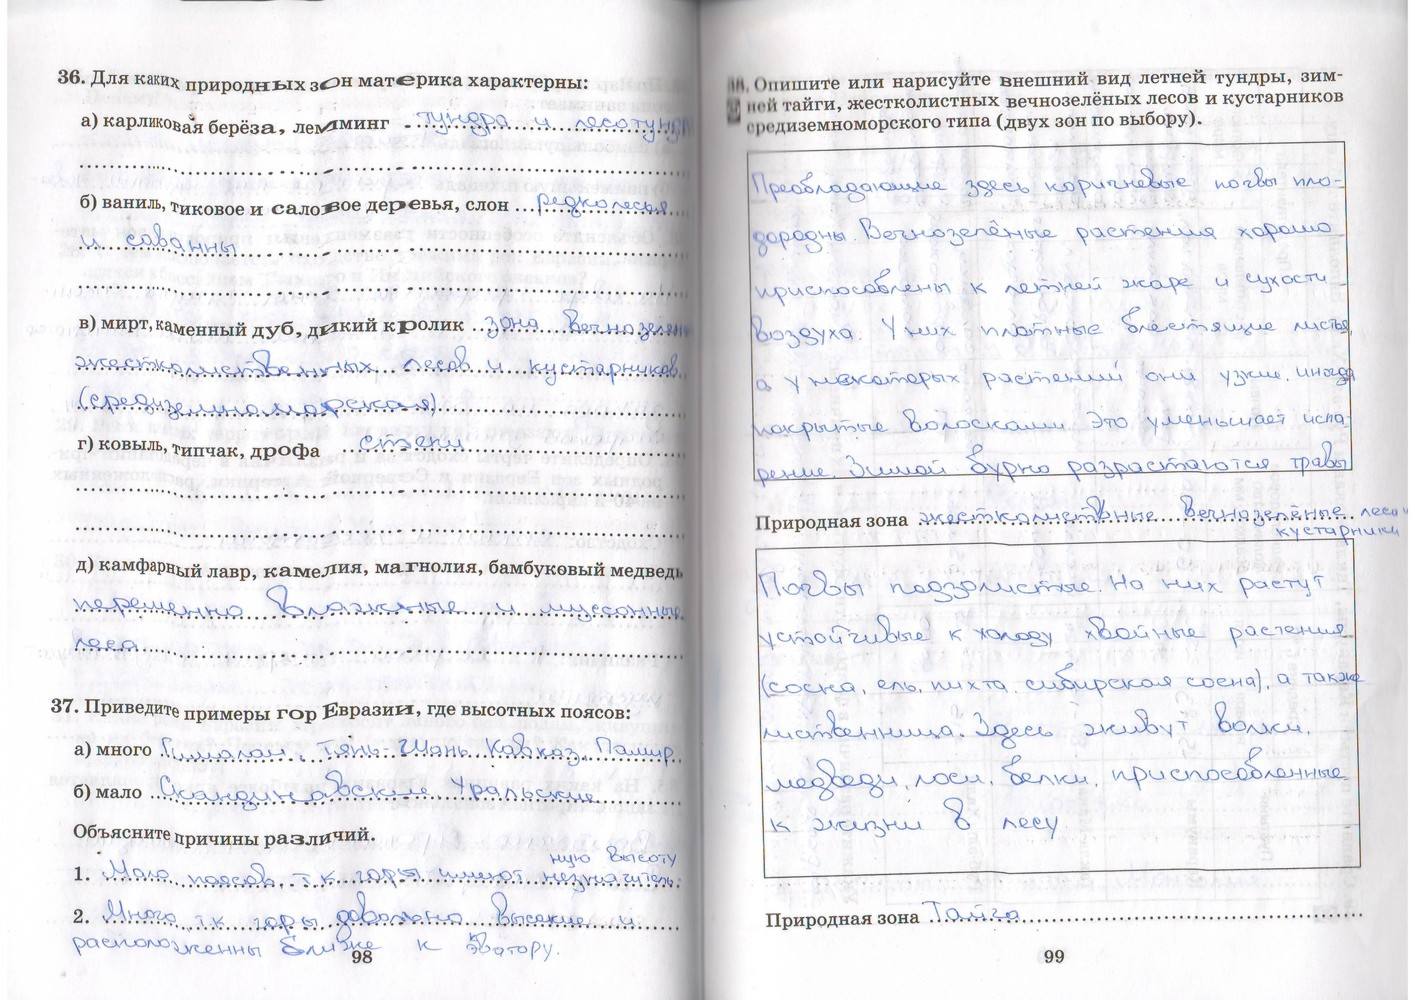 36. Для каких природных зон материка характерны:
а) карликовая берёза, лемминг тундра и лесотундр
б) ваниль, тиковое и саловое деревья, слон редколесья
и саванны
в) мирт, каменный дуб, дикий кролик зона вечнозелён
жестколиственных лесов и кустарников
(средиземноморская)
г) ковыль, типчак, дрофа степи
д) камфарный лавр, камелия, магнолия, бамбуковый медведь
переменно влажные и муссонные
леса
37. Приведите примеры гор Евразии, где высотных поясов:
а) много Гималаи, Тянь-Шань, Кавказ, Памир
б) мало Скандинавские Уральские
Объясните причины различий.
ную высоту
1. Мало поясов, т.к горы имеют незначитель-
2. Много, т.к горы довольно высокие и
расположенны ближе к экватору.
98
Опишите или нарисуйте внешний вид летней тундры, зим-
ней тайги, жестколистных вечнозелёных лесов и кустарников
средиземноморского типа (двух зон по выбору).
Преобладающие здесь коричневые почвы пло-
дородны. Вечнозелёные растения хорошо
приспособлены к летней жаре и сухости
воздуха. У них плотные блестящие листья,
а у некоторых растений они узкие, иногда
покрытые волосками. Это уменьшает испа-
рение. Зимой бурно разрастаются травы
Природная зона жестколиствные вечнозелёные леса и
кустарники
Почвы подзолистые. На них растут
устойчивые к холоду хвойные растения
(сосна, ель, пихта, сибирская сосна), а также
лиственница. Здесь живут волки,
медведи, лоси, белки, приспособленные
к жизни в лесу
Природная зона Тайга
99